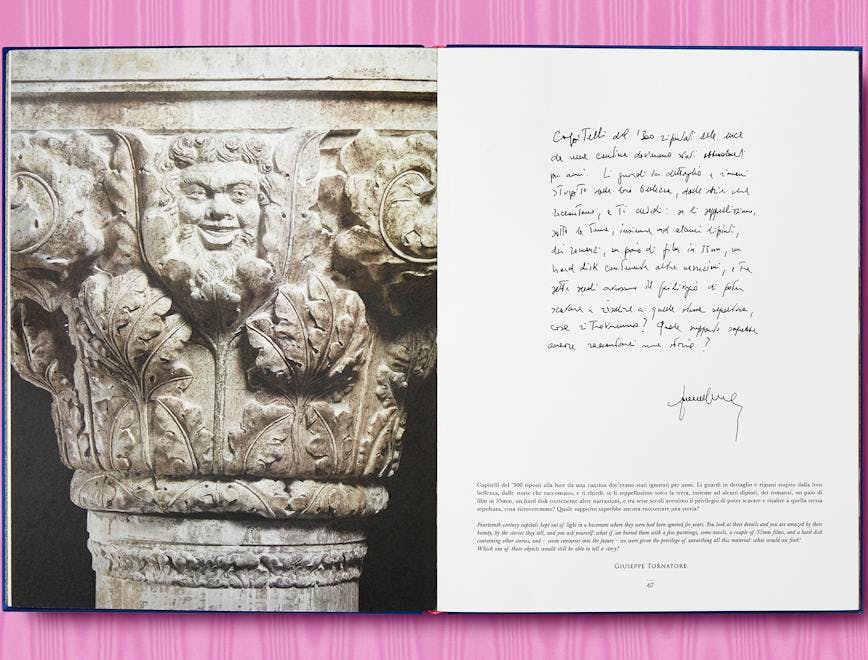 Capitelli del '300 riportati alla luce
da una cantina dov'erano stati abbandonati
per anni. Li guardi in dettaglio e rimani
stupito dalla loro bellezza, dalle storie che
raccontano, e ti chiedi: se li seppellissimo,
sotto la terra, insieme ad alcuni dipinti,
dei romanzi, un paio di film in 35mm, un
hard disk contenente altre narrazioni, e tra
sette secoli avessimo il privilegio di poter
scavare e risalire a quella stessa sepoltura,
cosa ritroveremmo? Quale supporto saprebbe
ancora raccontare una storia?
Capitelli del '300 riposti alla luce da una cantina dov'erano stati ignorati per anni. Li guardi in dettaglio e rimani stupito dalla loro
bellezza, dalle storie che raccontano, e ti chiedi: se li seppellissimo sotto la terra, insieme ad dipinti, dei romanzi, un paio di
film in 35mm, un hard disk contenente altre narrazioni, e tra sette secoli avessimo il privilegio di poter scavare e risalire a quella stessa
sepoltura, cosa ritroveremmo? Quale supporto saprebbe ancora raccontare una storia?
Fourteenth-century capitals kept out of light in a basement where they were had been ignored for years. You look at their details and you are amazed by their
beauty, by the stories they tell, and you ask yourself: what if we buried them with a few paintings, some novels, a couple of 35mm films, and a hard disk
containing other stories, and – seven centuries into the future – we were given the privilege of unearthing all this material: what would we find?
Which one of these objects would still be able to tell a story?
Giuseppe Tornatore
67